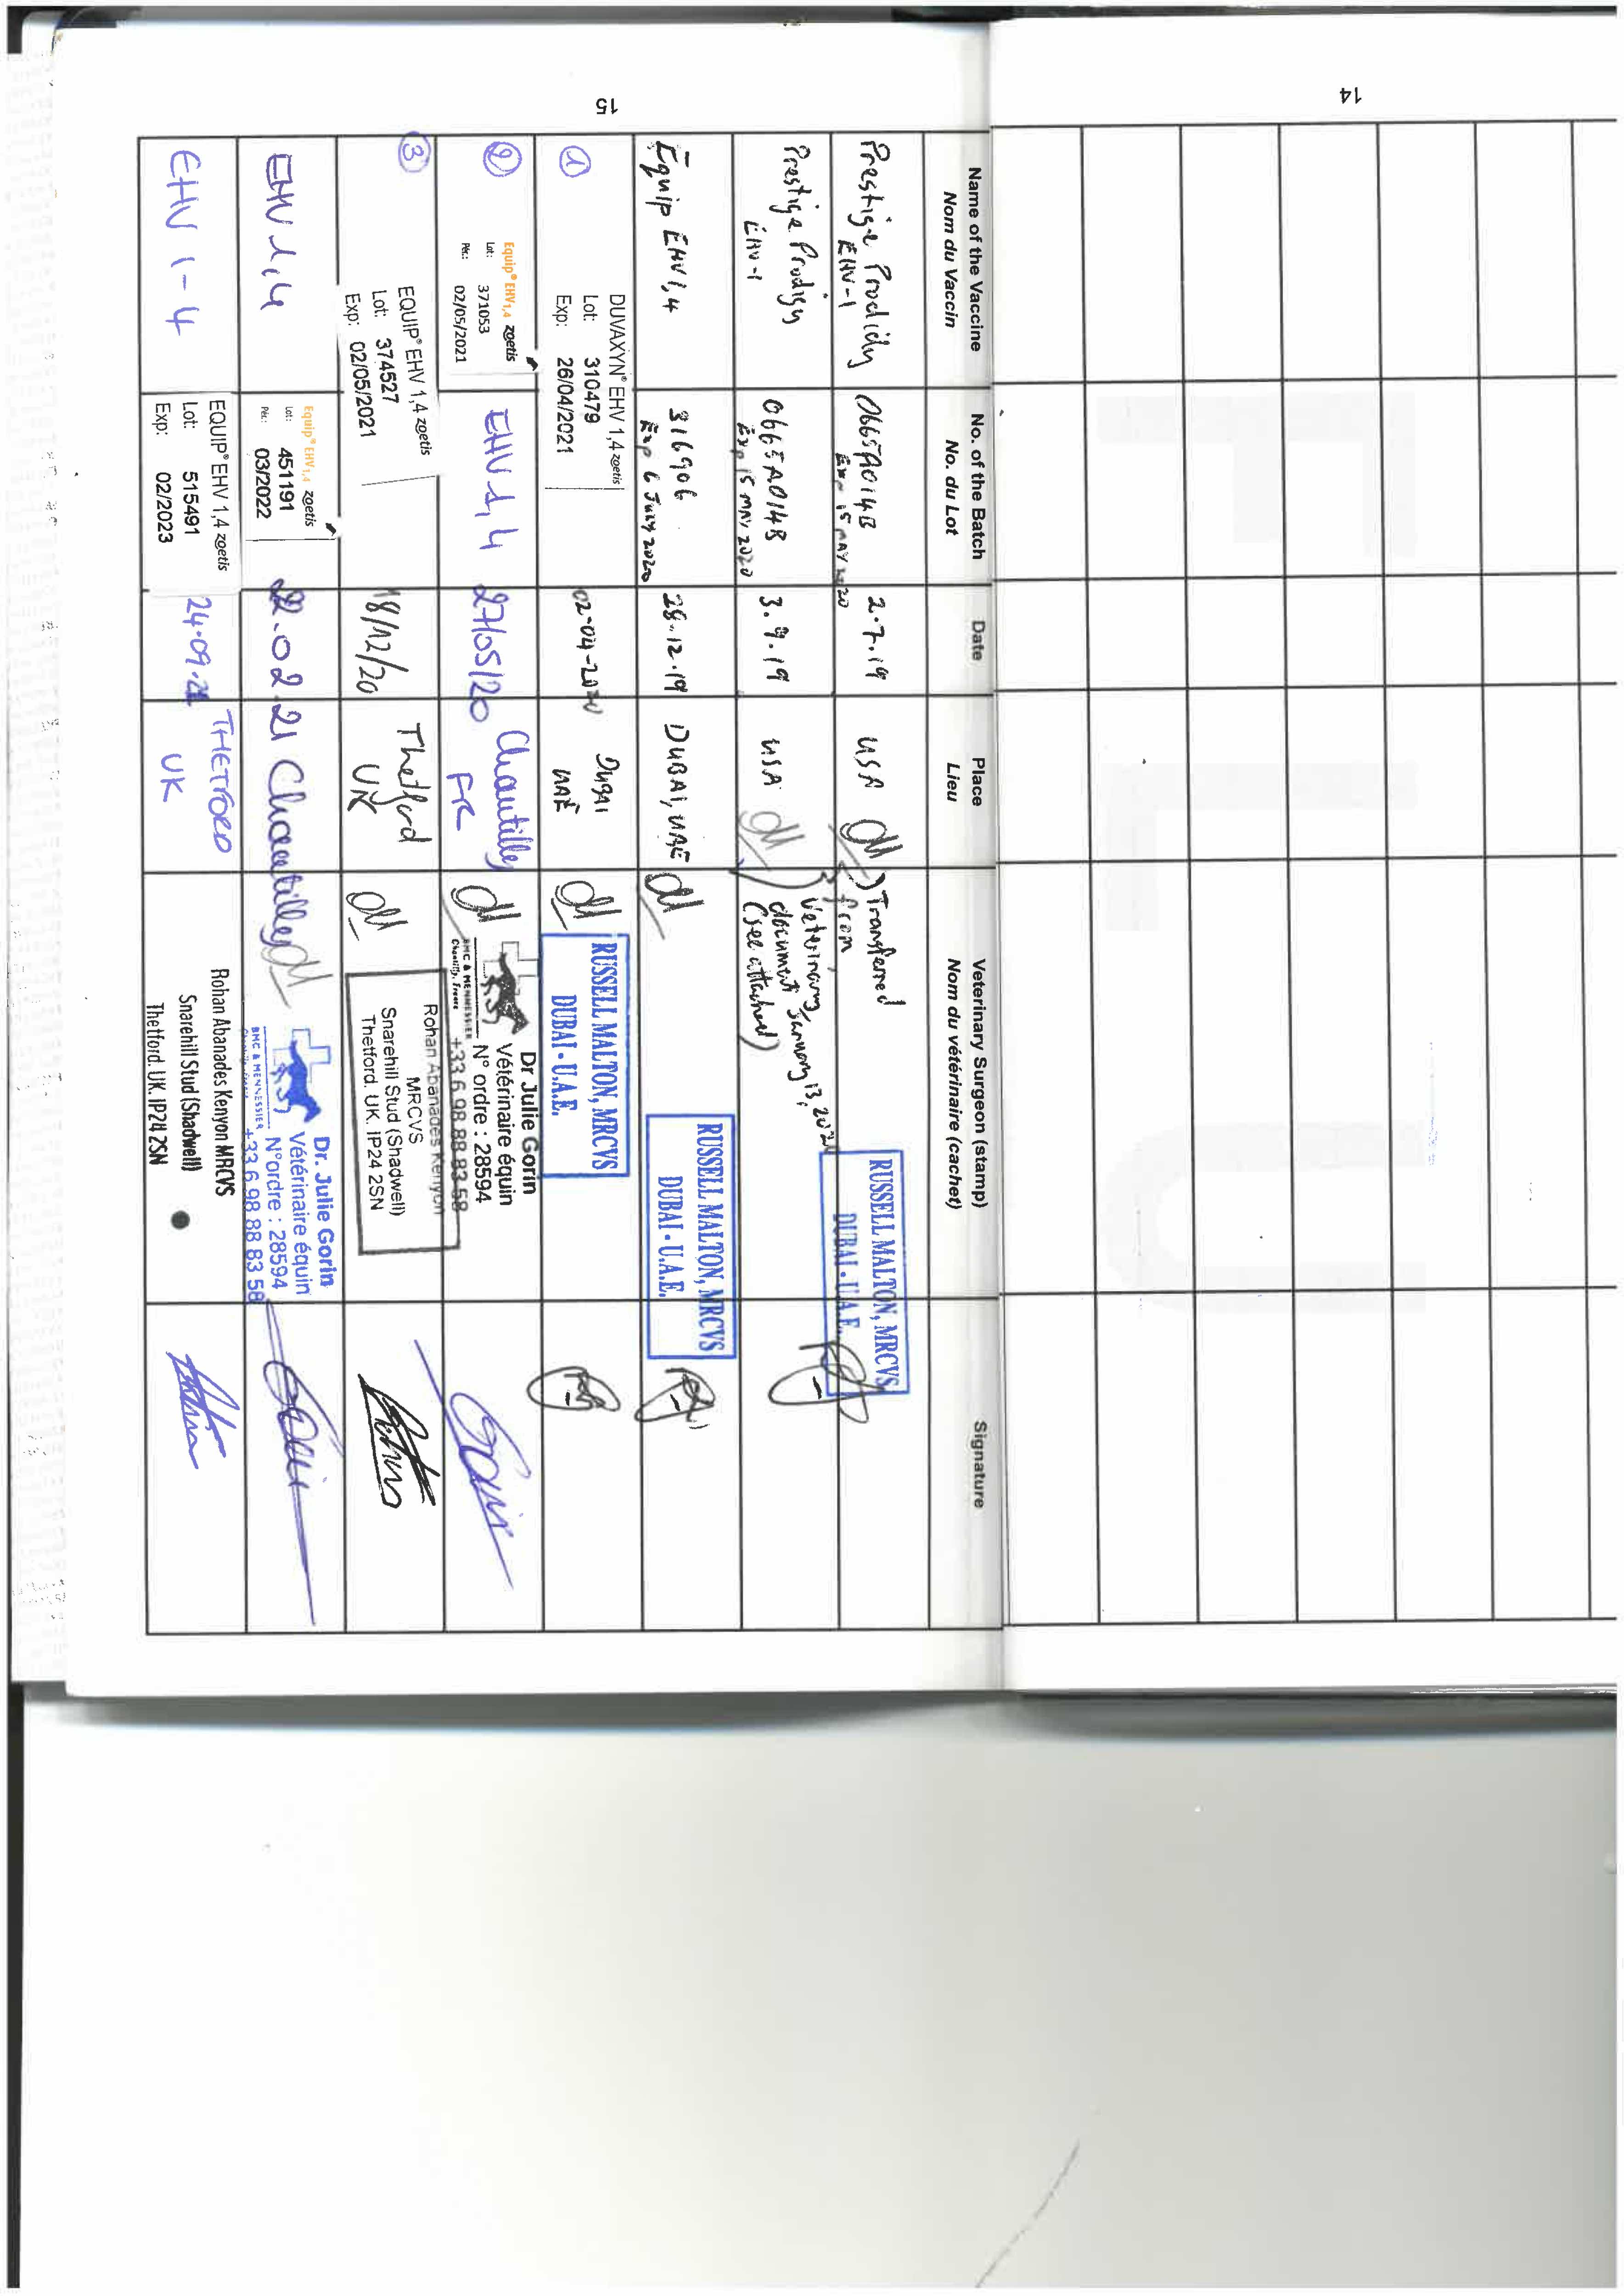 14
15
Name of the Vaccine
Nom du Vaccin
No. of the Batch
No. du Lot
Date
Place
Lieu
Veterinary Surgeon (stamp)
Nom du vétérinaire (cachet)
Signature
Prestige Prodidy
EHV-1
0665A014B
Exp 15 MAY 2020
2.7.19
USA
Transferred
from
RUSSELL MALTON, MRCVS
DUBAI - U.A.E.
Prestige Prodigy
EHV-1
0665A014B
Exp 15 MAY 2020
3.9.19
USA
Veterinary
document January 13, 2020
(see attached)
Equip EHV 1,4
316906
Exp 6 July 2020
28.12.19
DUBAI, UAE
RUSSELL MALTON, MRCVS
DUBAI - U.A.E.
1
DUVAXYN® EHV 1,4 zoetis
Lot: 310479
Exp: 26/04/2021
02-04-2020
DUBAI
UAE
RUSSELL MALTON, MRCVS
DUBAI - U.A.E.
2
Equip® EHV1,4 zoetis
Lot: 371053
Pér.: 02/05/2021
EHV 1,4
27/05/20
Chantilly
FR
Dr Julie Gorin
Vétérinaire équin
N° ordre : 28594
+33 6 98 88 83 58
BMC & MENNESSIER
Chantilly, France
3
EQUIP® EHV 1,4 zoetis
Lot: 374527
Exp: 02/05/2021
18/12/20
Thetford
UK
Rohan Abanades Kenyon
MRCVS
Snarehill Stud (Shadwell)
Thetford. UK. IP24 2SN
EHV 1,4
Equip® EHV1,4 zoetis
Lot: 451191
Pér.: 03/2022
22.02.21
Chantilly
Dr. Julie Gorin
Vétérinaire équin
N°ordre : 28594
+33 6 98 88 83 58
BMC & MENNESSIER
EHV 1-4
EQUIP® EHV 1,4 zoetis
Lot: 515491
Exp: 02/2023
24.09.21
THETFORD
UK
Rohan Abanades Kenyon MRCVS
Snarehill Stud (Shadwell)
Thetford. UK. IP24 2SN